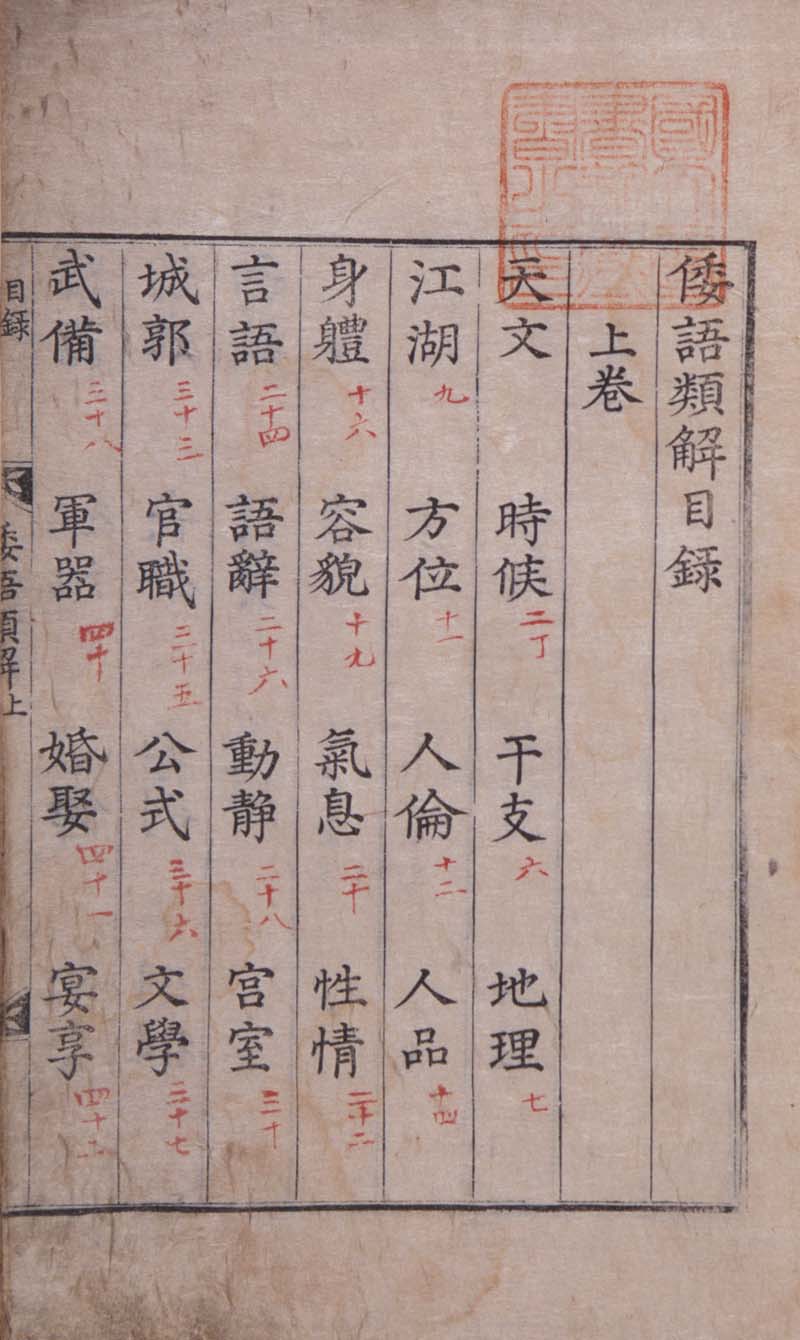 倭語類解目録
上卷
天文 時候二丁 干支六 地理七
江湖九 方位十一 人倫十二 人品十四
身軆十六 容貌十九 氣息二十 性情二十二
言語二十四 語辭二十六 動静二十八 宫室三十
城郭三十三 官職三十五 公式三十六 文學三十七
武備三十八 軍器四十 婚娶四十一 宴享四十二
目録
倭語類解上